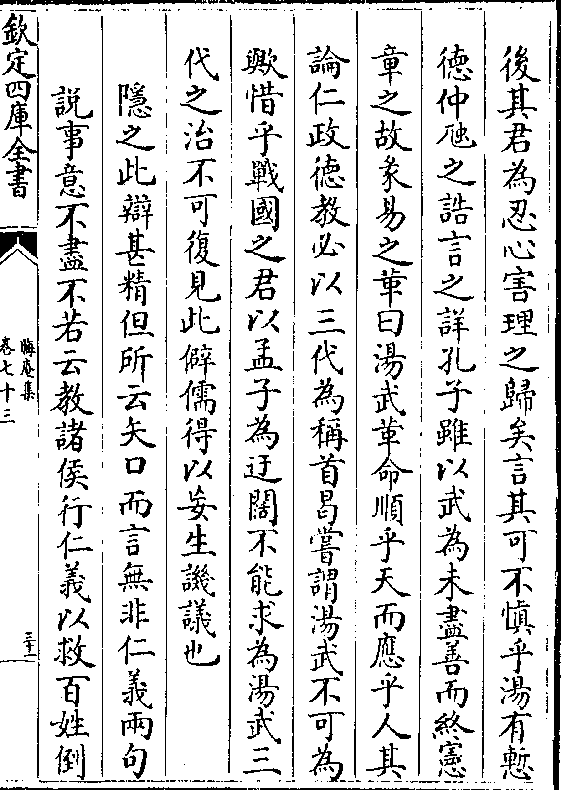 後其君為忍心害理之歸矣言其可不慎乎湯有慙
徳仲虺之誥言之詳孔子雖以武為未盡善而終憲
章之故象易之革曰湯武革命順乎天而應乎人其
論仁政徳教必以三代為稱首曷嘗謂湯武不可為
歟惜乎戰國之君以孟子為迂闊不能求為湯武三
代之治不可復見此僻儒得以妄生譏議也
隱之此辯甚精但所云矢口而言無非仁義兩句
説事意不盡不若云教諸侯行仁義以救百姓倒
欽定四庫全書
晦庵集
卷七十三
三十二